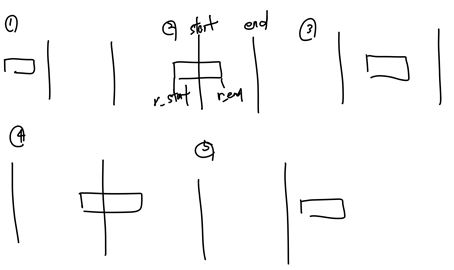 ①
② start end
③
r_start r_end
④
⑤